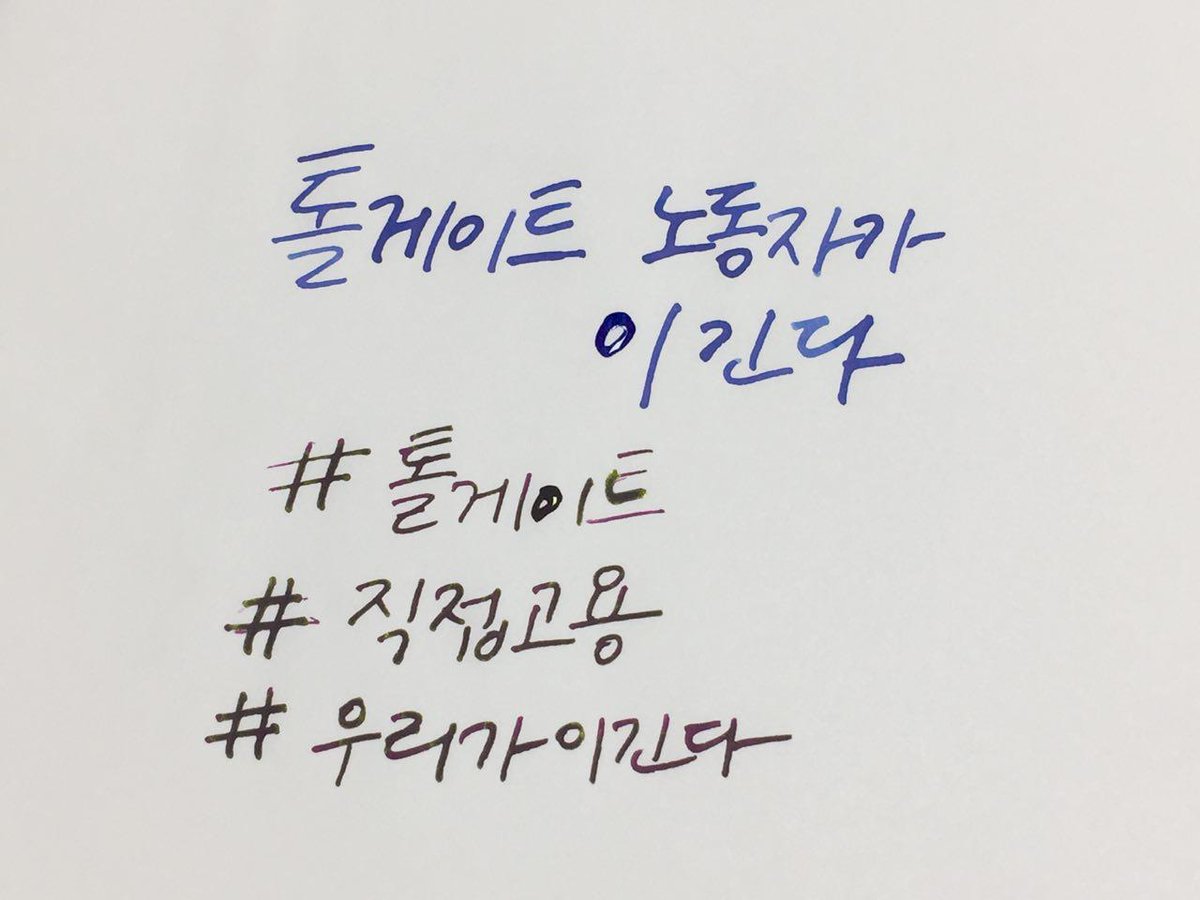 톨게이트 노동자가
이긴다
# 톨게이트
# 직접고용
# 우리가이긴다